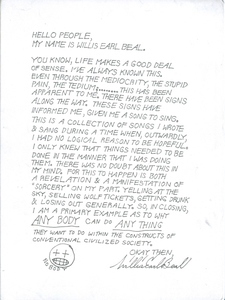 HELLO PEOPLE,
MY NAME IS WILLIS EARL BEAL.
YOU KNOW, LIFE MAKES A GOOD DEAL
OF SENSE. I'VE ALWAYS KNOWN THIS.
EVEN THROUGH THE MEDIOCRITY, THE STUPID
PAIN, THE TEDIUM:......... THIS HAS BEEN
APPARENT TO ME. THERE HAVE BEEN SIGNS
ALONG THE WAY. THESE SIGNS HAVE
INFORMED ME, GIVEN ME A SONG TO SING.
THIS IS A COLLECTION OF SONGS I WROTE
& SANG DURING A TIME WHEN, OUTWARDLY,
I HAD NO LOGICAL REASON TO BE HOPEFUL.
I ONLY KNEW THAT THINGS NEEDED TO BE
DONE IN THE MANNER THAT I WAS DOING
THEM. THERE WAS NO DOUBT ABOUT THIS IN
MY MIND. FOR THIS TO HAPPEN IS BOTH
A REVELATION & A MANIFESTATION OF
"SORCERY" ON MY PART. YELLING AT THE
SKY, SELLING WOLF TICKETS, GETTING DRUNK
& LOSING OUT GENERALLY. SO, IN CLOSING,
I AM A PRIMARY EXAMPLE AS TO WHY
ANY BODY CAN DO ANY THING
THEY WANT TO DO WITHIN THE CONSTRUCTS OF
CONVENTIONAL CIVILIZED SOCIETY.
OKAY THEN,
Willis Earl Beal
NOBODY